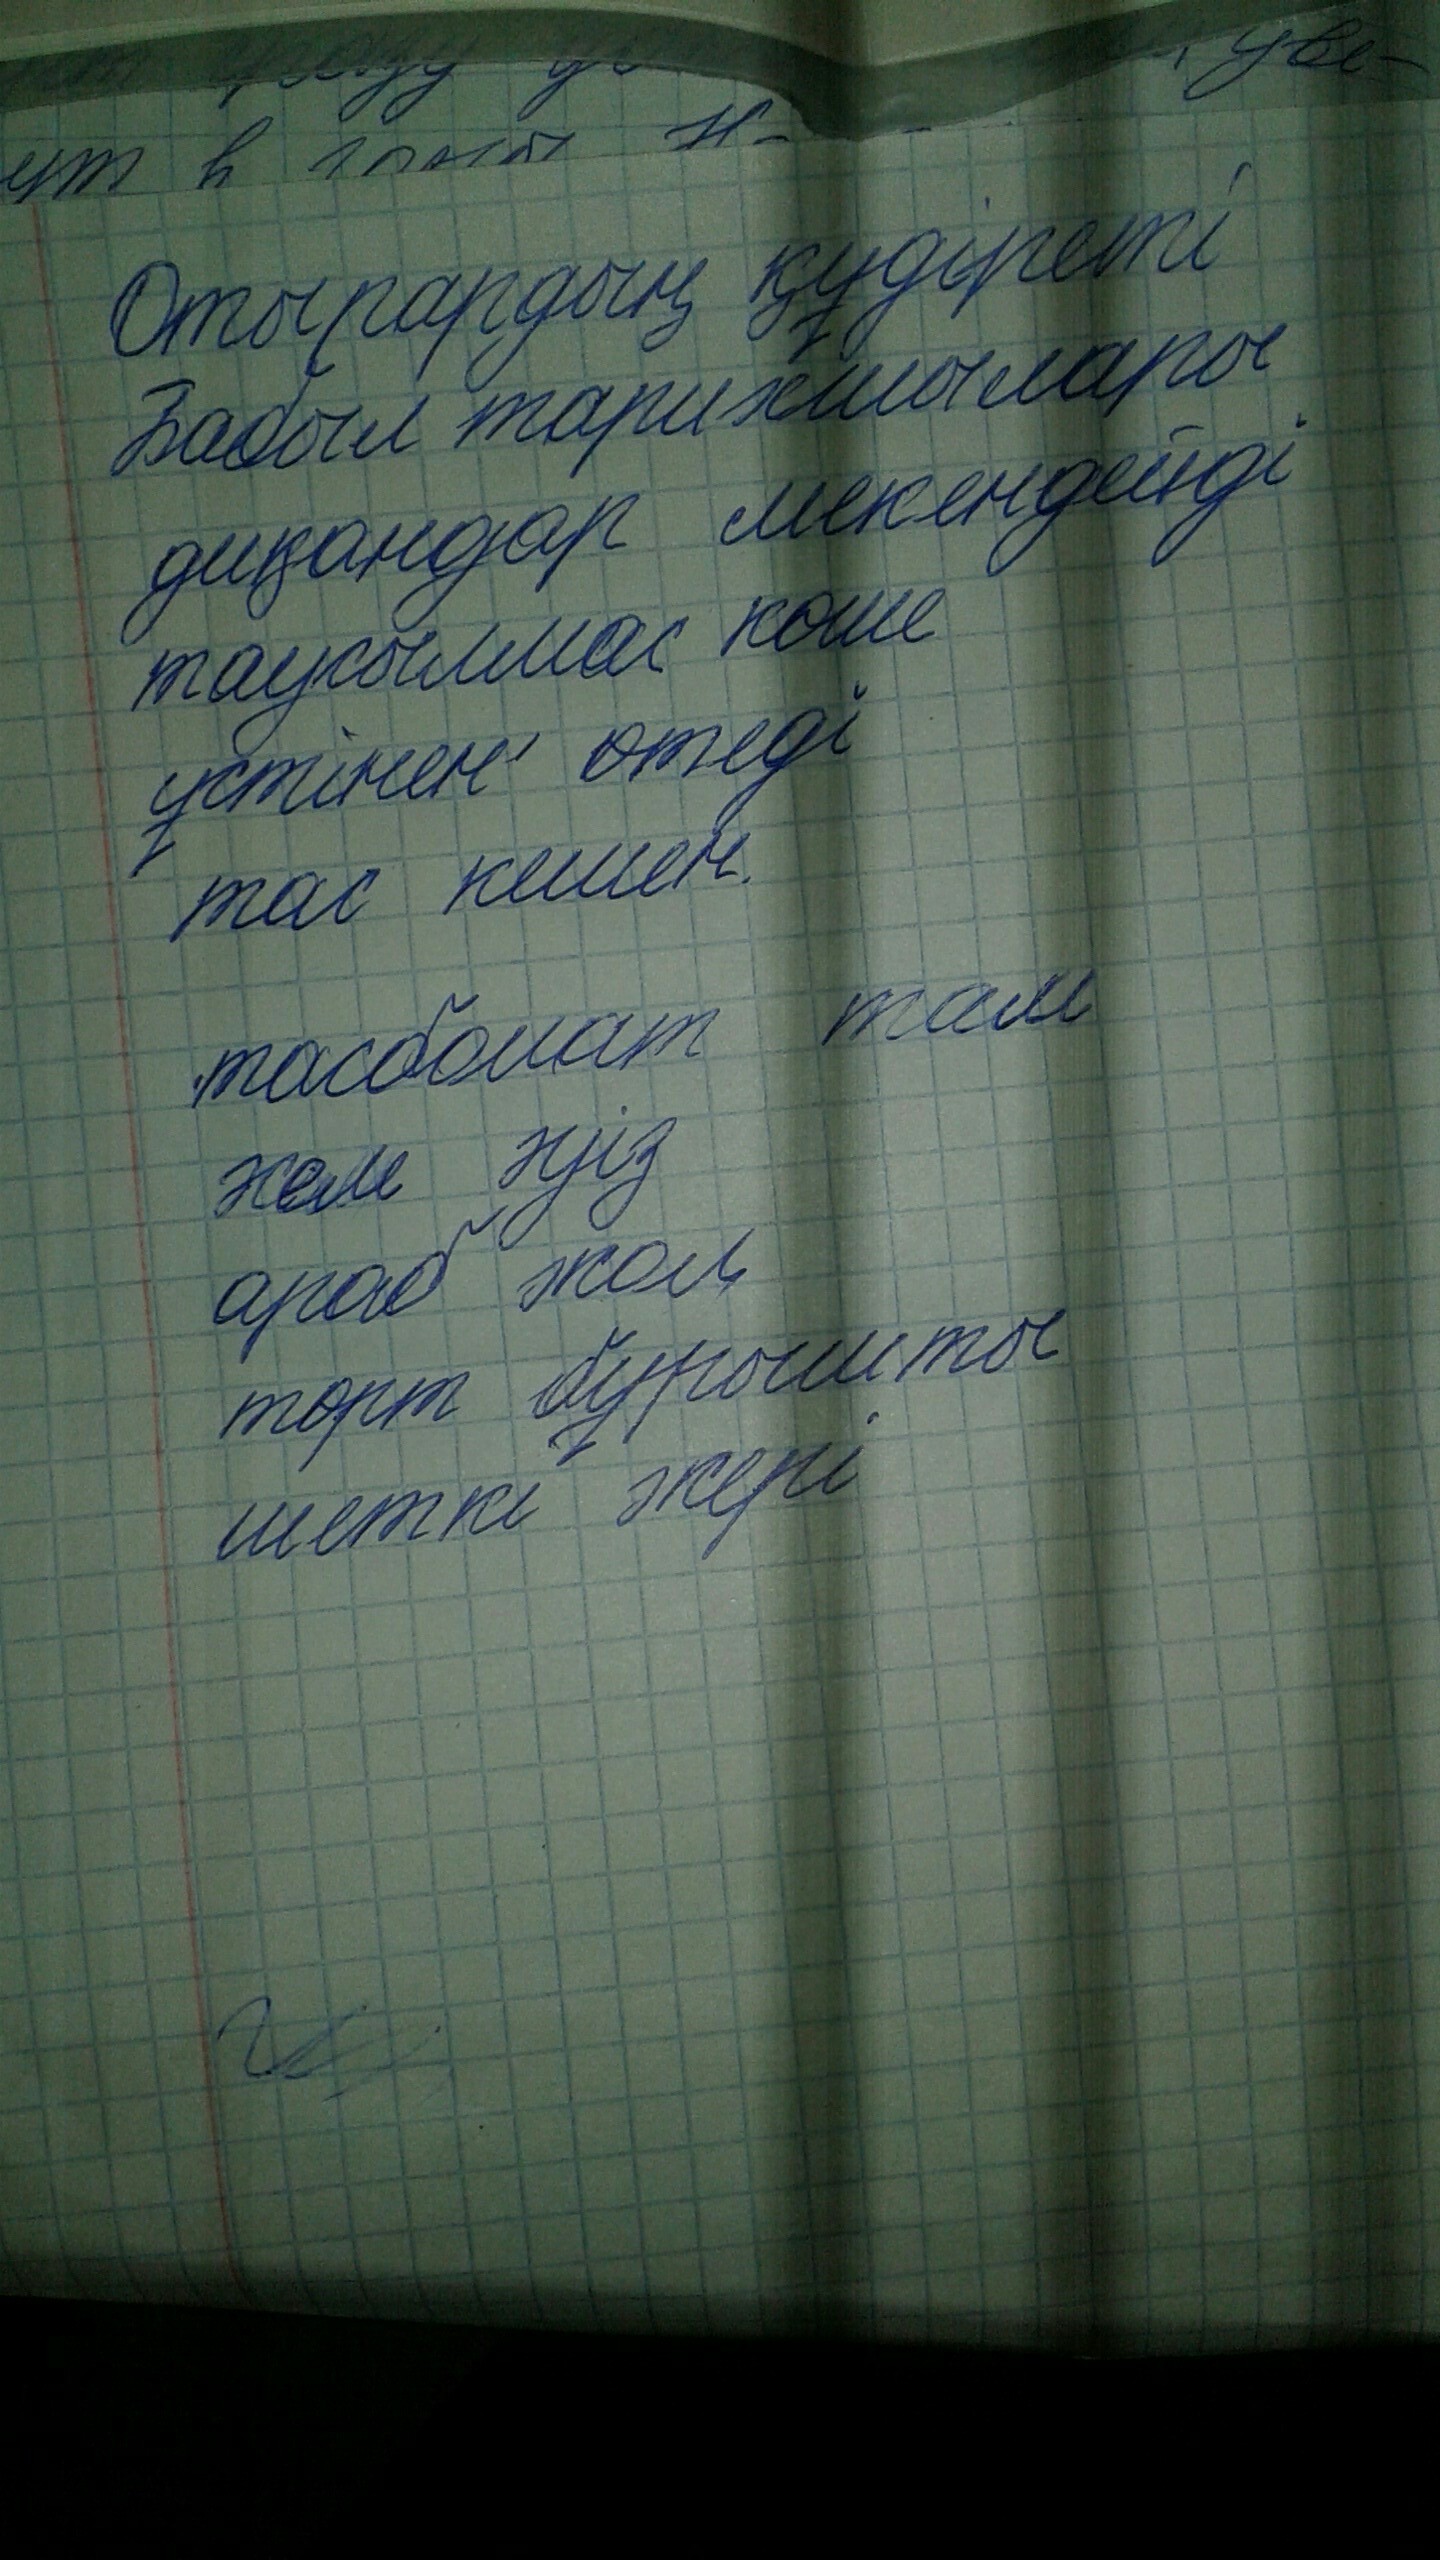 ут в
Отырардың құдіреті
Забыл тарихшылары
диқандар мекендейді
таусылмас коше
үстінен отеді
тас кешен.
тасбомат там
жем
араб жол
торт бұрышты
шеткі жері